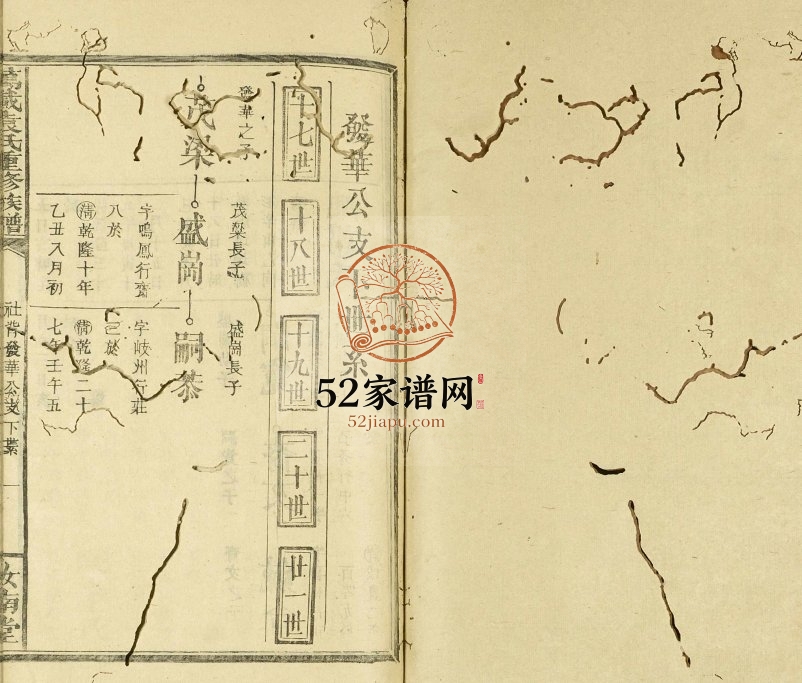 發華公支下世系
十七世
十八世
十九世
二十世
廿一世
發華之子
茂梁
茂梁長子
盛崗
盛崗長子
嗣恭
字鳴鳳行
八於
清乾隆十年
乙丑八月初
字岐州行莊
二於
清乾隆二十
七年壬午五
萬載袁氏重修族譜
社背發華公支下系
一
汝南堂
52家谱网
52jiapu.com